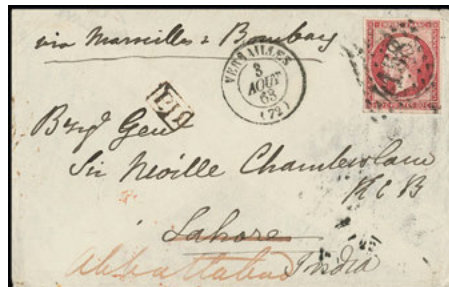 via Marseilles & Bombay
VERSAILLES
3
AOUT
63
(72)
4158
PD
Brigr Genl
Sir Neville Chamberlain
KCB
Lahore
Abbattabad
India